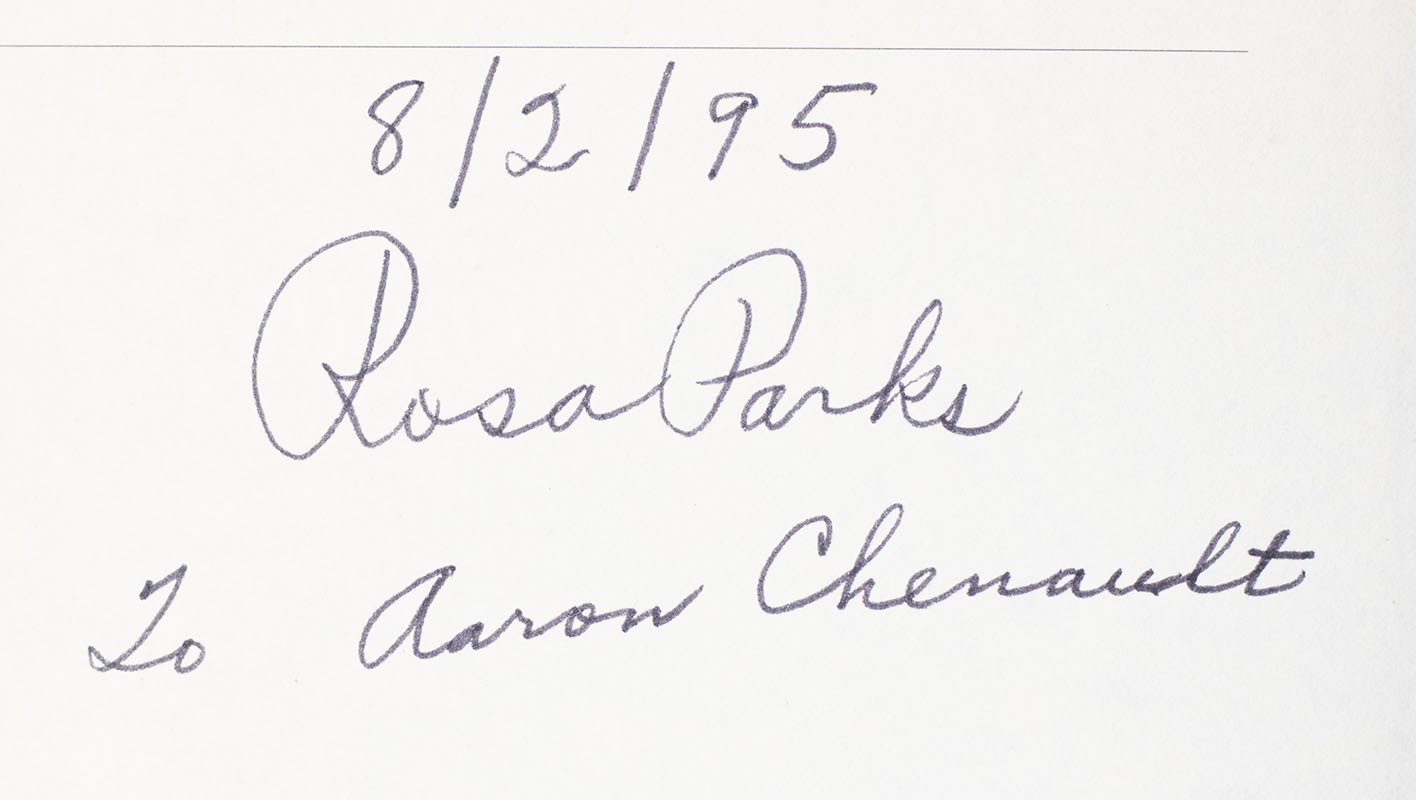 8/2/95
Rosa Parks
To Aaron Chenault